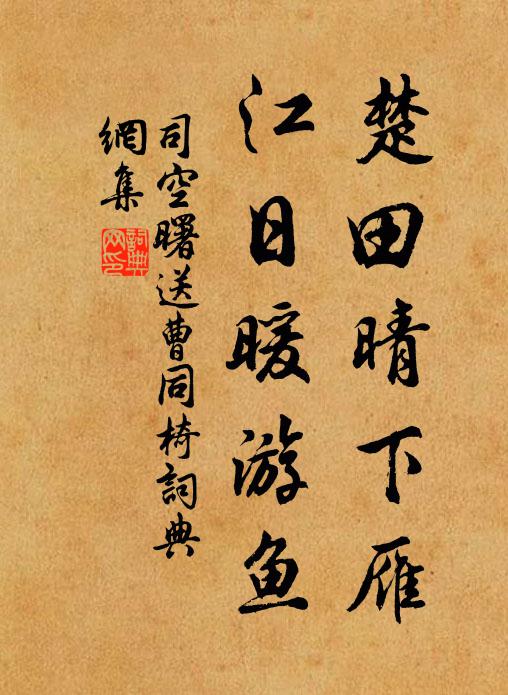 楚田晴下雁
江日暖游鱼
司空曙送曹同椅詞典
網集
詞典
网印